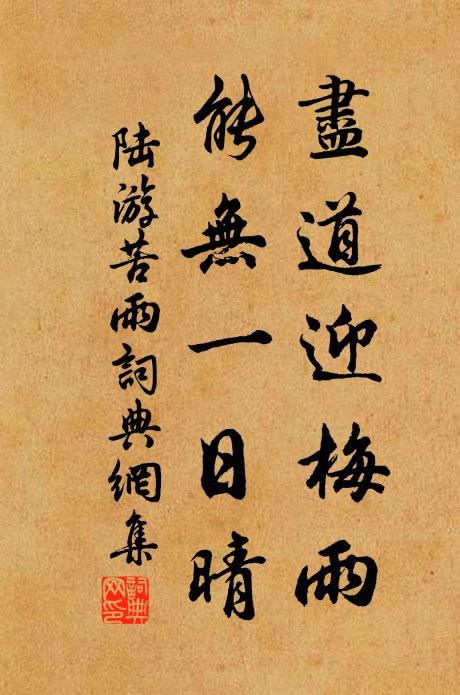 盡道迎梅雨
能無一日晴
陸游苦雨詞典網集
詞典
网印